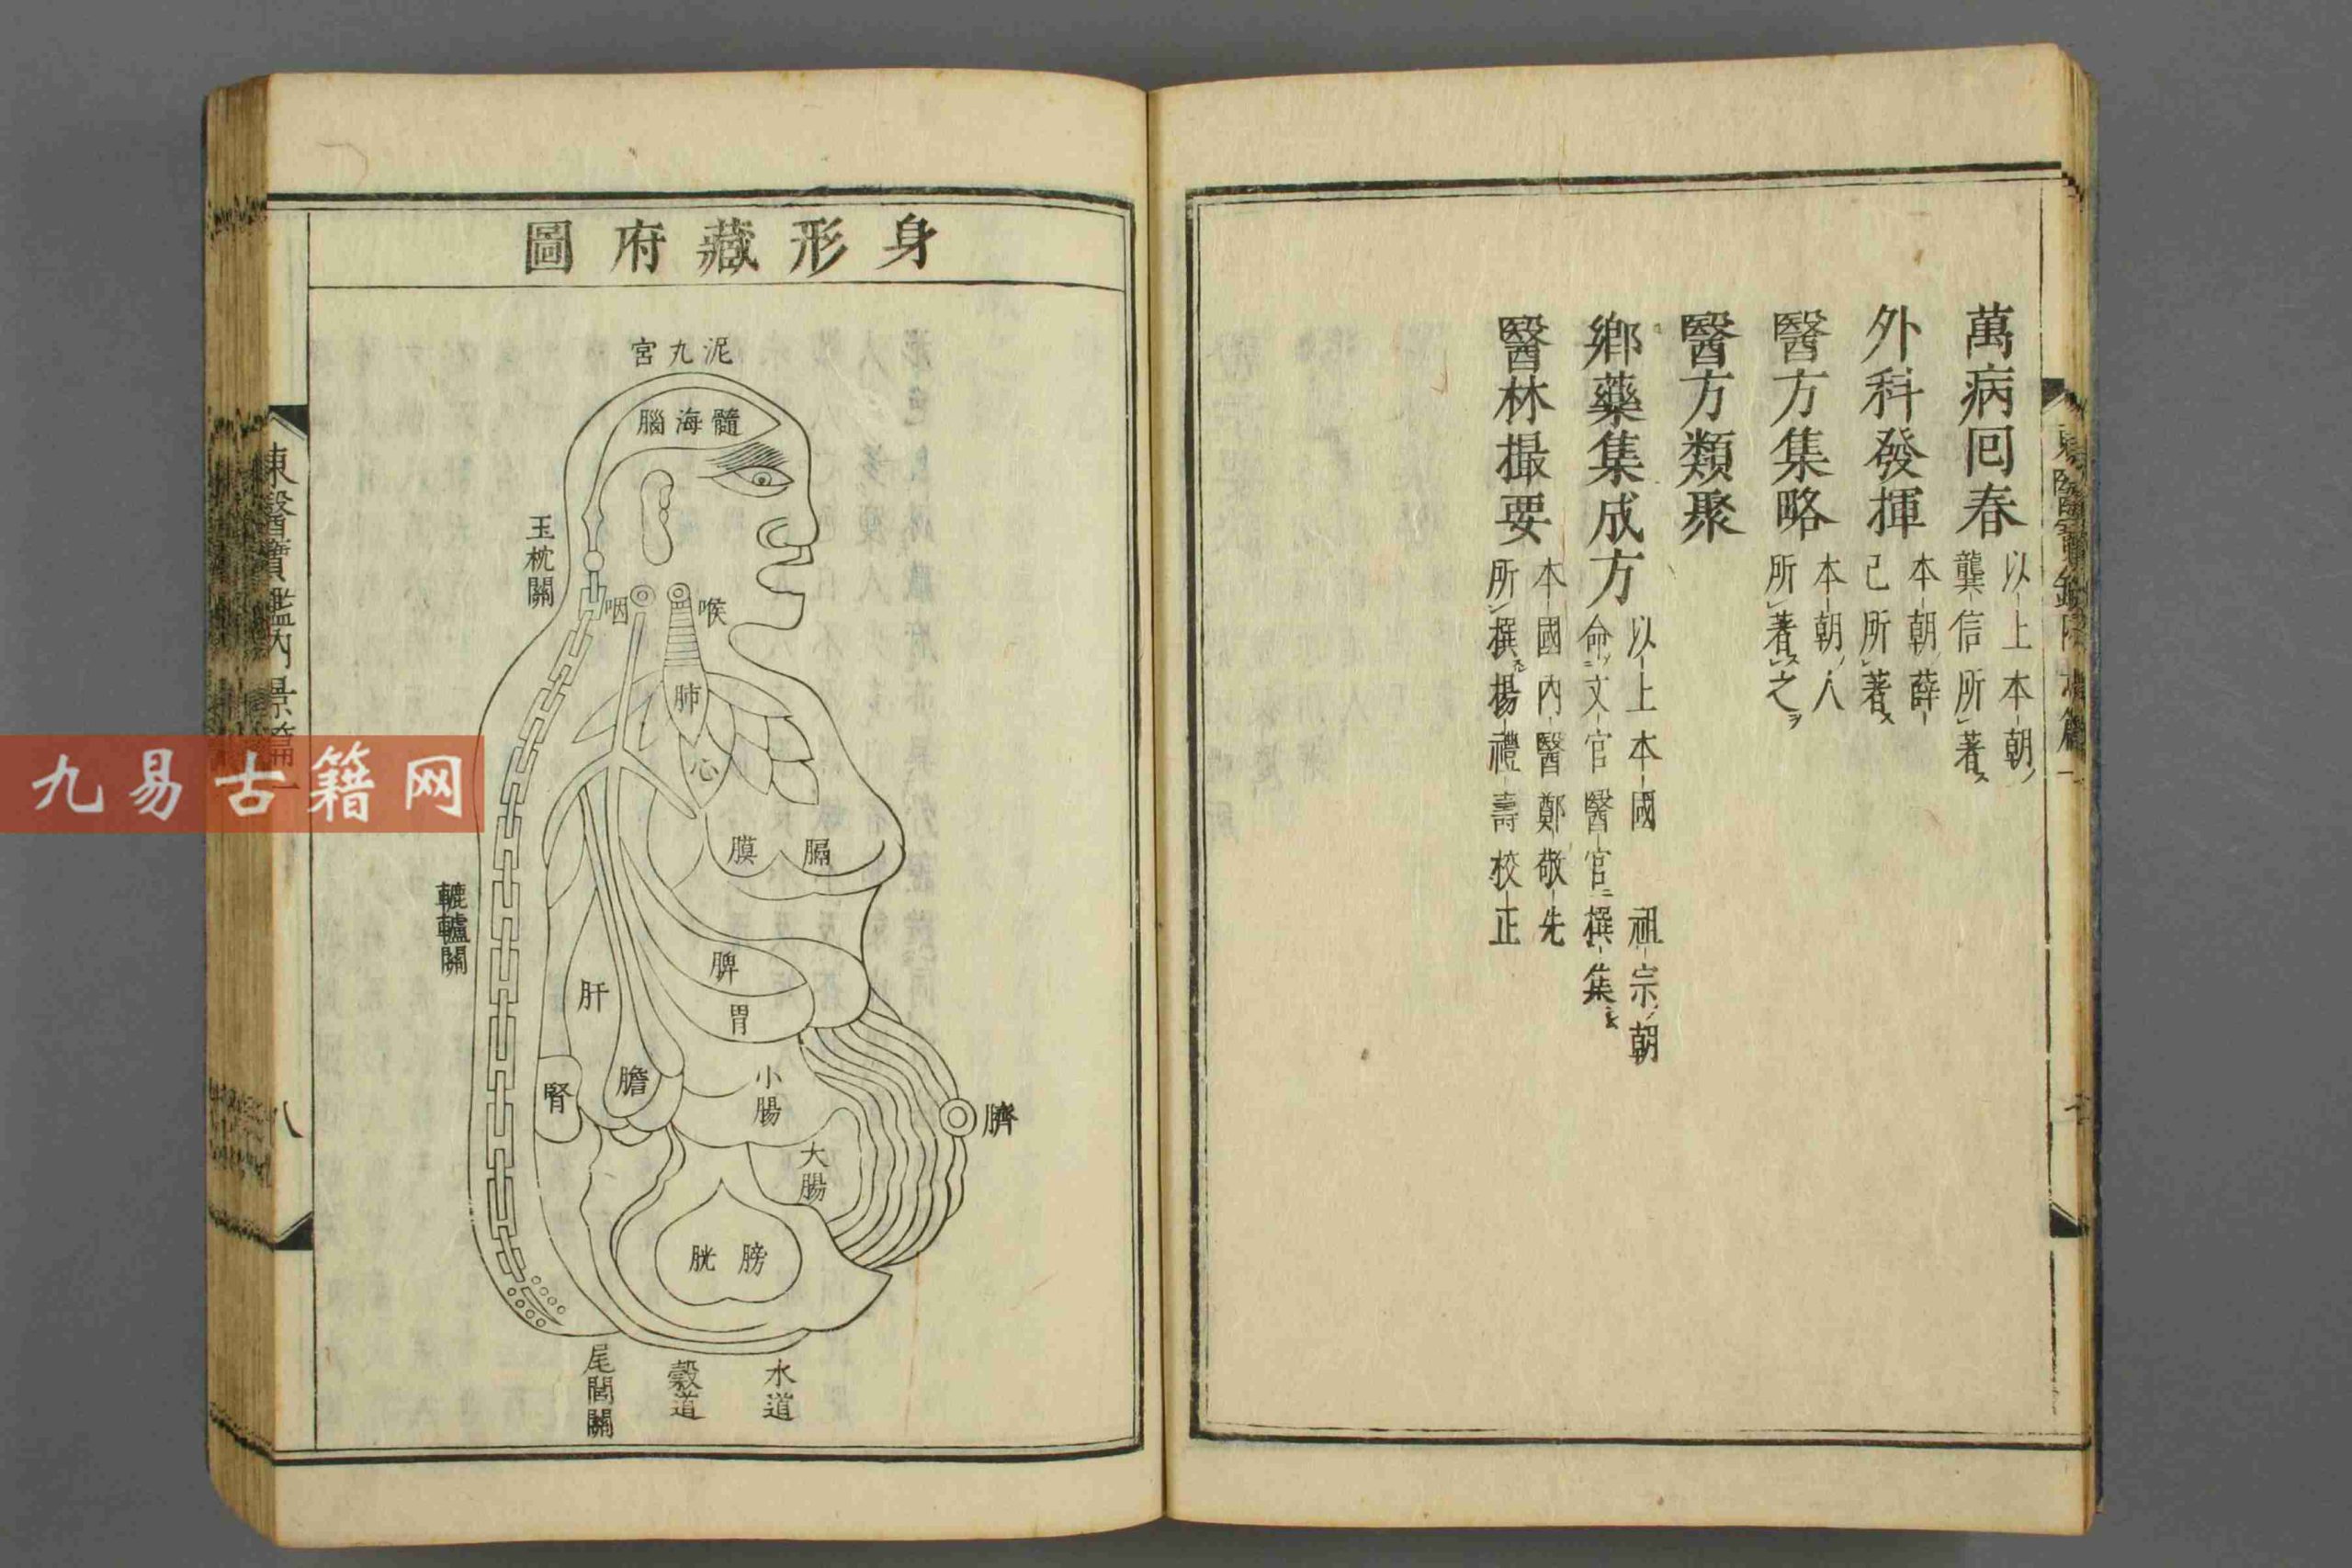 萬病回春
以上本朝
龔信所著
外科發揮
本朝薛
己所著
醫方集略
本朝人
所著之
醫方類聚
鄉藥集成方
以上本國 祖宗朝
命文官醫官撰集
醫林撮要
本國內醫鄭敬先
所撰楊禮壽校正
身形藏府圖
泥九宮
髓海腦
玉枕關
咽
喉
肺
心
膈
膜
轆轤關
脾
胃
肝
膽
腎
小腸
大腸
臍
膀胱
水道
穀道
尾閭關
東醫寶鑑內景篇一
八
九易古籍网